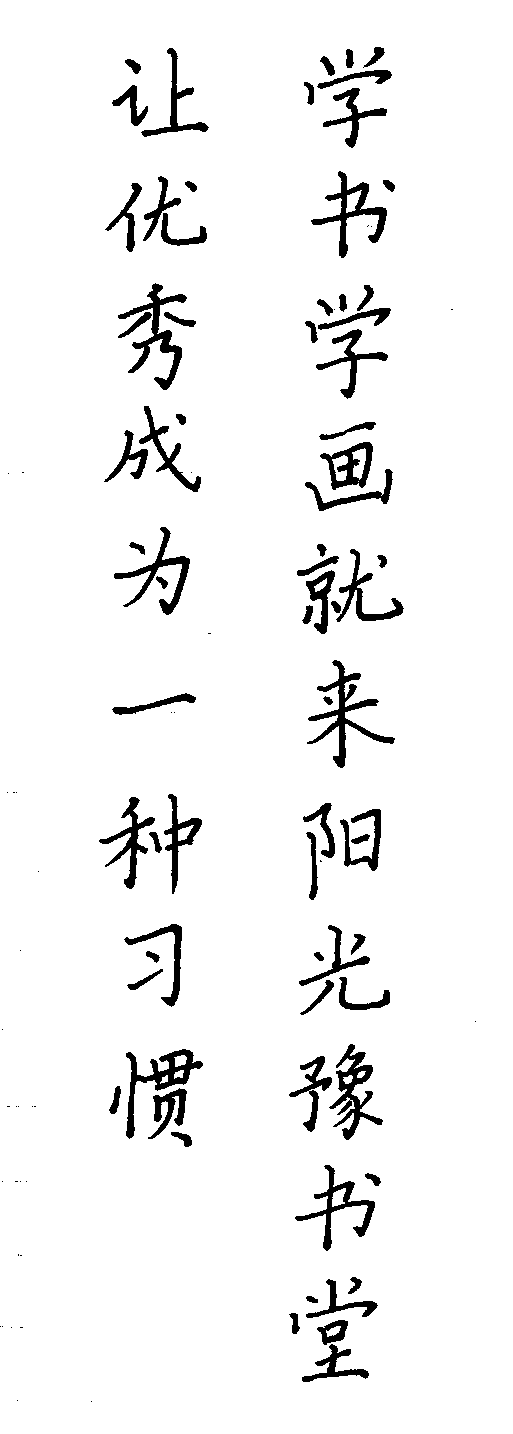 学书学画就来阳光豫书堂
让优秀成为一种习惯